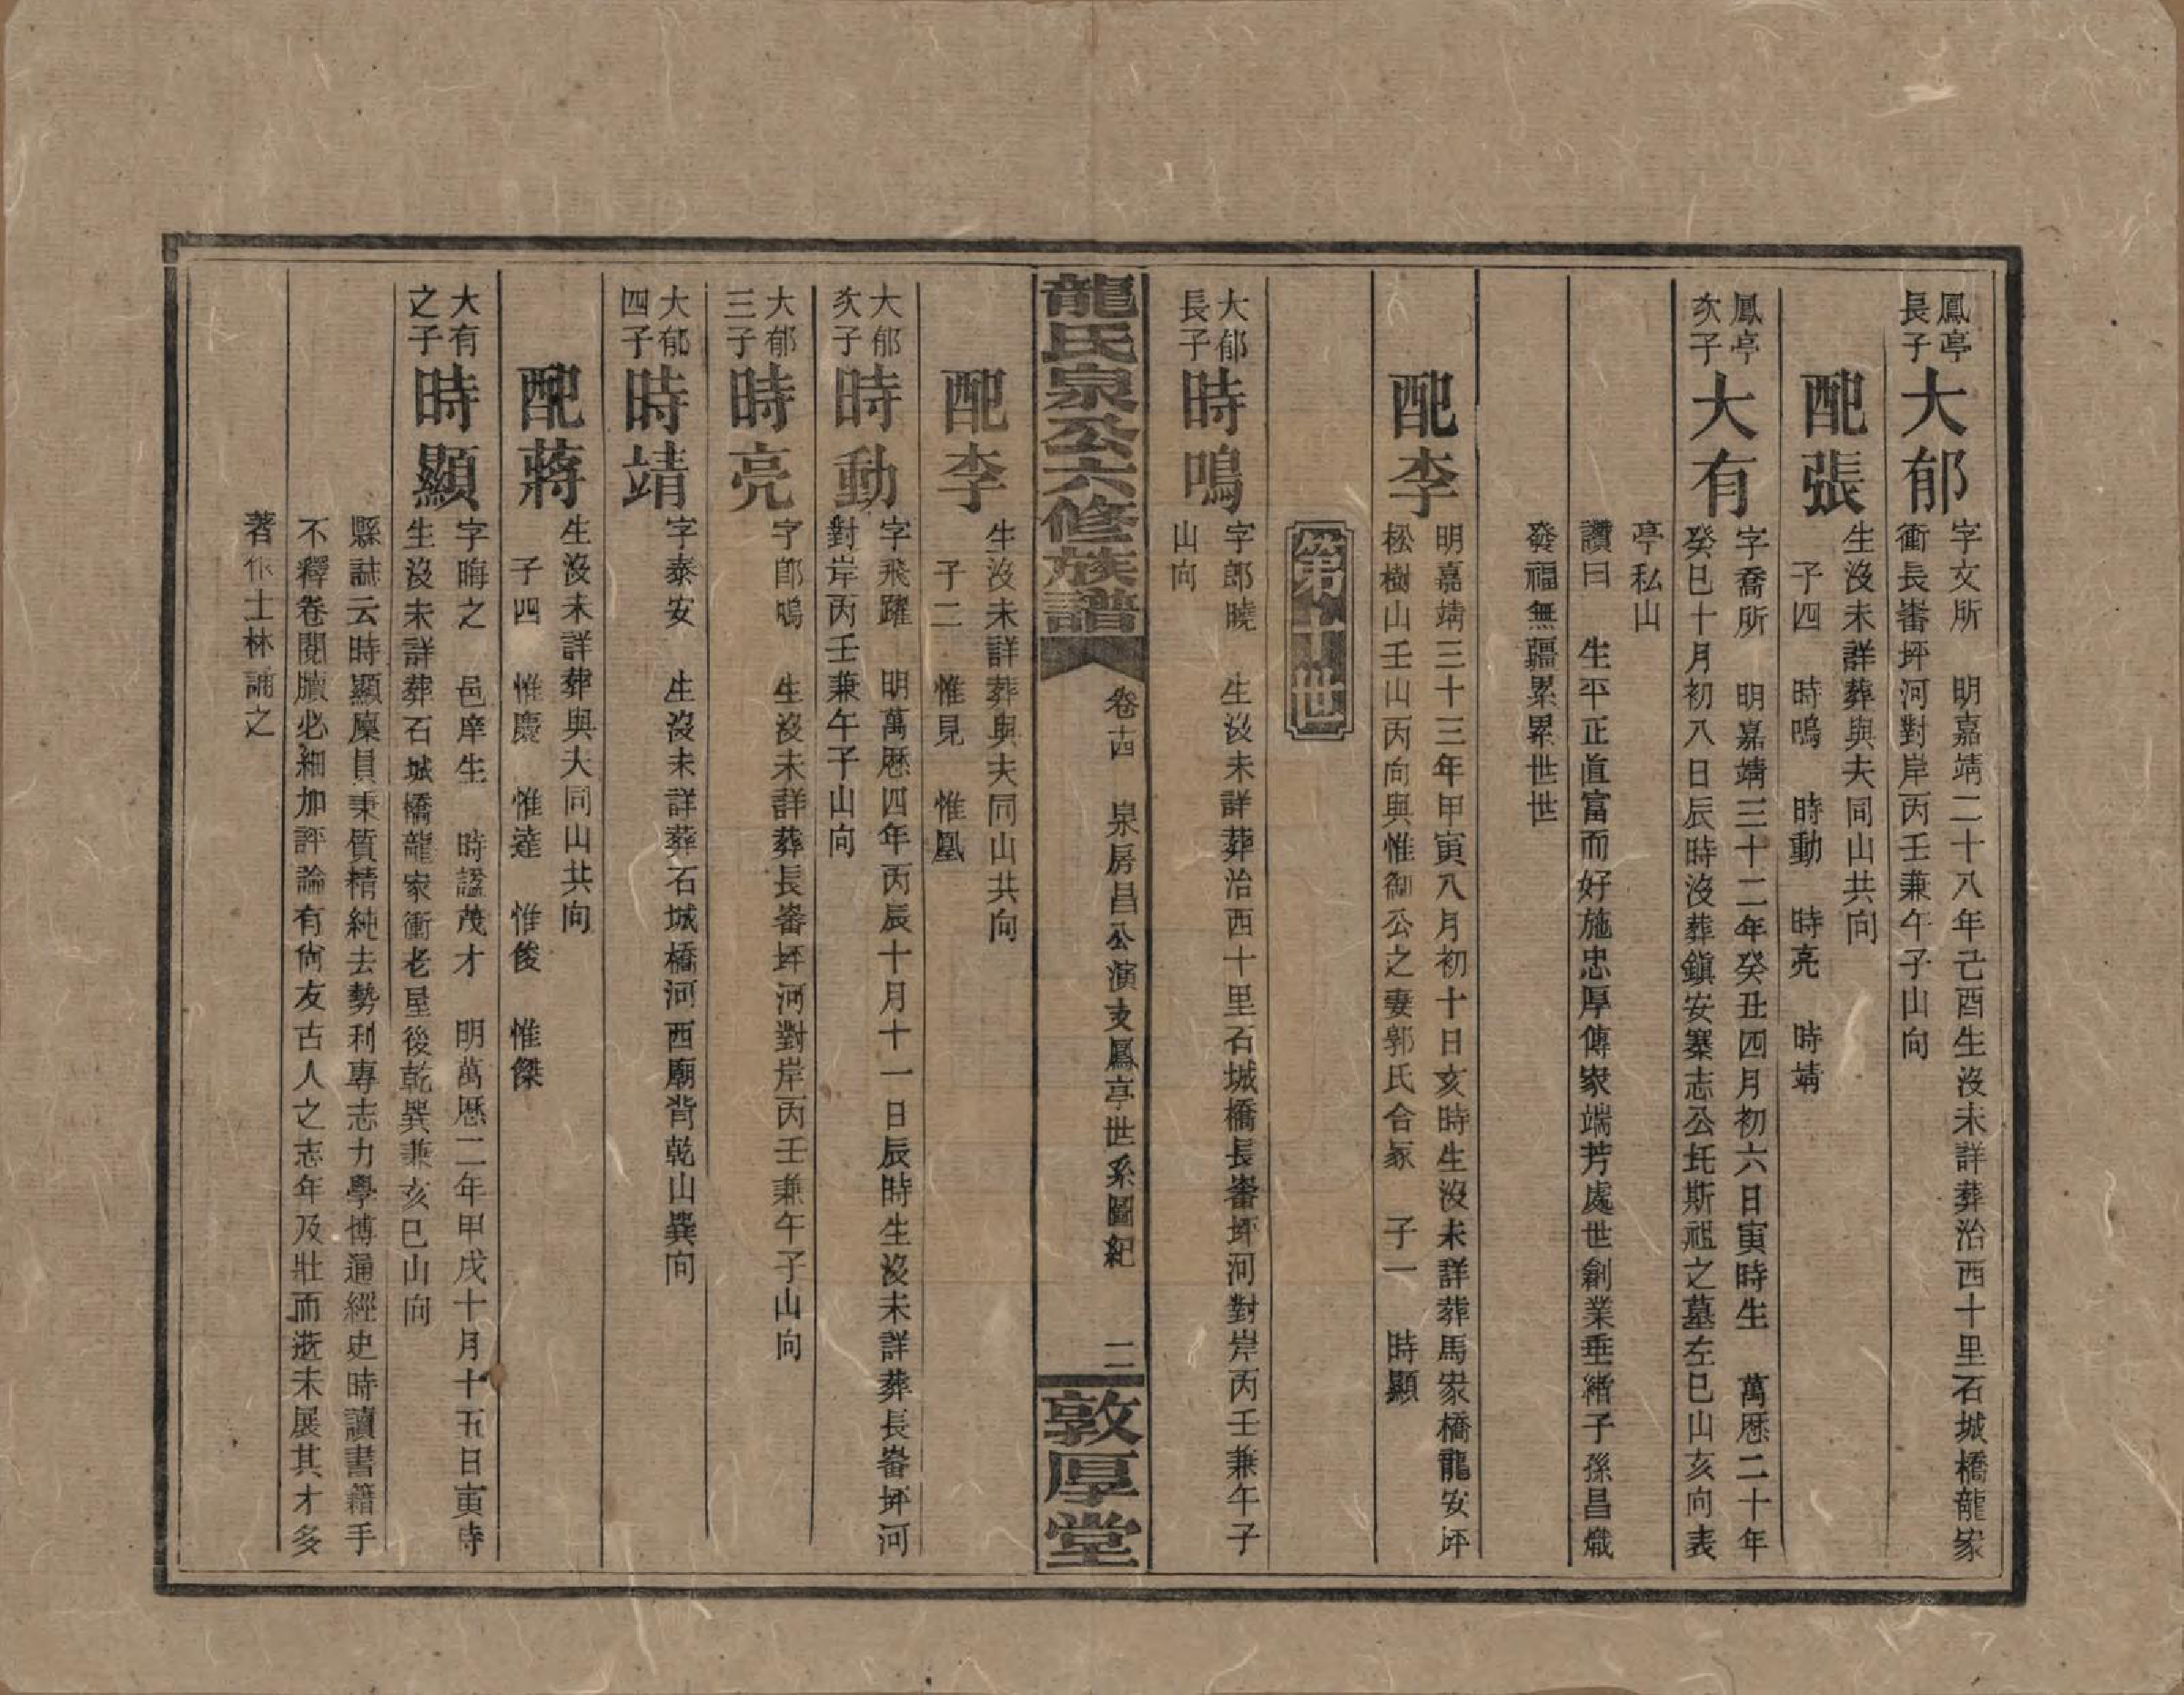 鳳亭
長子
大郁
字文所　明嘉靖二十八年己酉生沒未詳葬治西十里石城橋龍家
衝長畬坪河對岸丙壬兼午子山向
配張
生沒未詳葬與夫同山共向
子四　時鳴　時動　時亮　時靖
鳳亭
次子
大有
字喬所　明嘉靖三十二年癸丑四月初六日寅時生　萬曆二十年
癸巳十月初八日辰時沒葬鎮安寨志公圫斯祖之墓左巳山亥向表
亭私山
讚曰　生平正直富而好施忠厚傳家端芳處世創業垂緒子孫昌熾
發福無疆累累世世
配李
明嘉靖三十三年甲寅八月初十日亥時生沒未詳葬馬家橋龍安坪
松樹山壬山丙向與惟御公之妻郭氏合冢　子一　時顯
第十世
大郁
長子
時鳴
字郎曉　生沒未詳葬治西十里石城橋長畬坪河對岸丙壬兼午子
山向
龍氏泉公六修族譜
卷十四　泉房昌公演支鳳亭世系圖紀　二
敦厚堂
配李
生沒未詳葬與夫同山共向
子二　惟見　惟凰
大郁
次子
時動
字飛躍　明萬曆四年丙辰十月十一日辰時生沒未詳葬長畬坪河
對岸丙壬兼午子山向
大郁
三子
時亮
字郎鳴　生沒未詳葬長畬坪河對岸丙壬兼午子山向
大郁
四子
時靖
字泰安　生沒未詳葬石城橋河西廟背乾山巽向
配蔣
生沒未詳葬與夫同山共向
子四　惟慶　惟達　惟俊　惟傑
大有
之子
時顯
字晦之　邑庠生　時謚茂才　明萬曆二年甲戌十月十五日寅時
生沒未詳葬石城橋龍家衝老屋後乾巽兼亥巳山向
縣誌云時顯廩員秉質精純去勢利專志力學博通經史時讀書籍手
不釋卷閱牘必細加評論有尚友古人之志年及壯而逝未展其才多
著作士林誦之